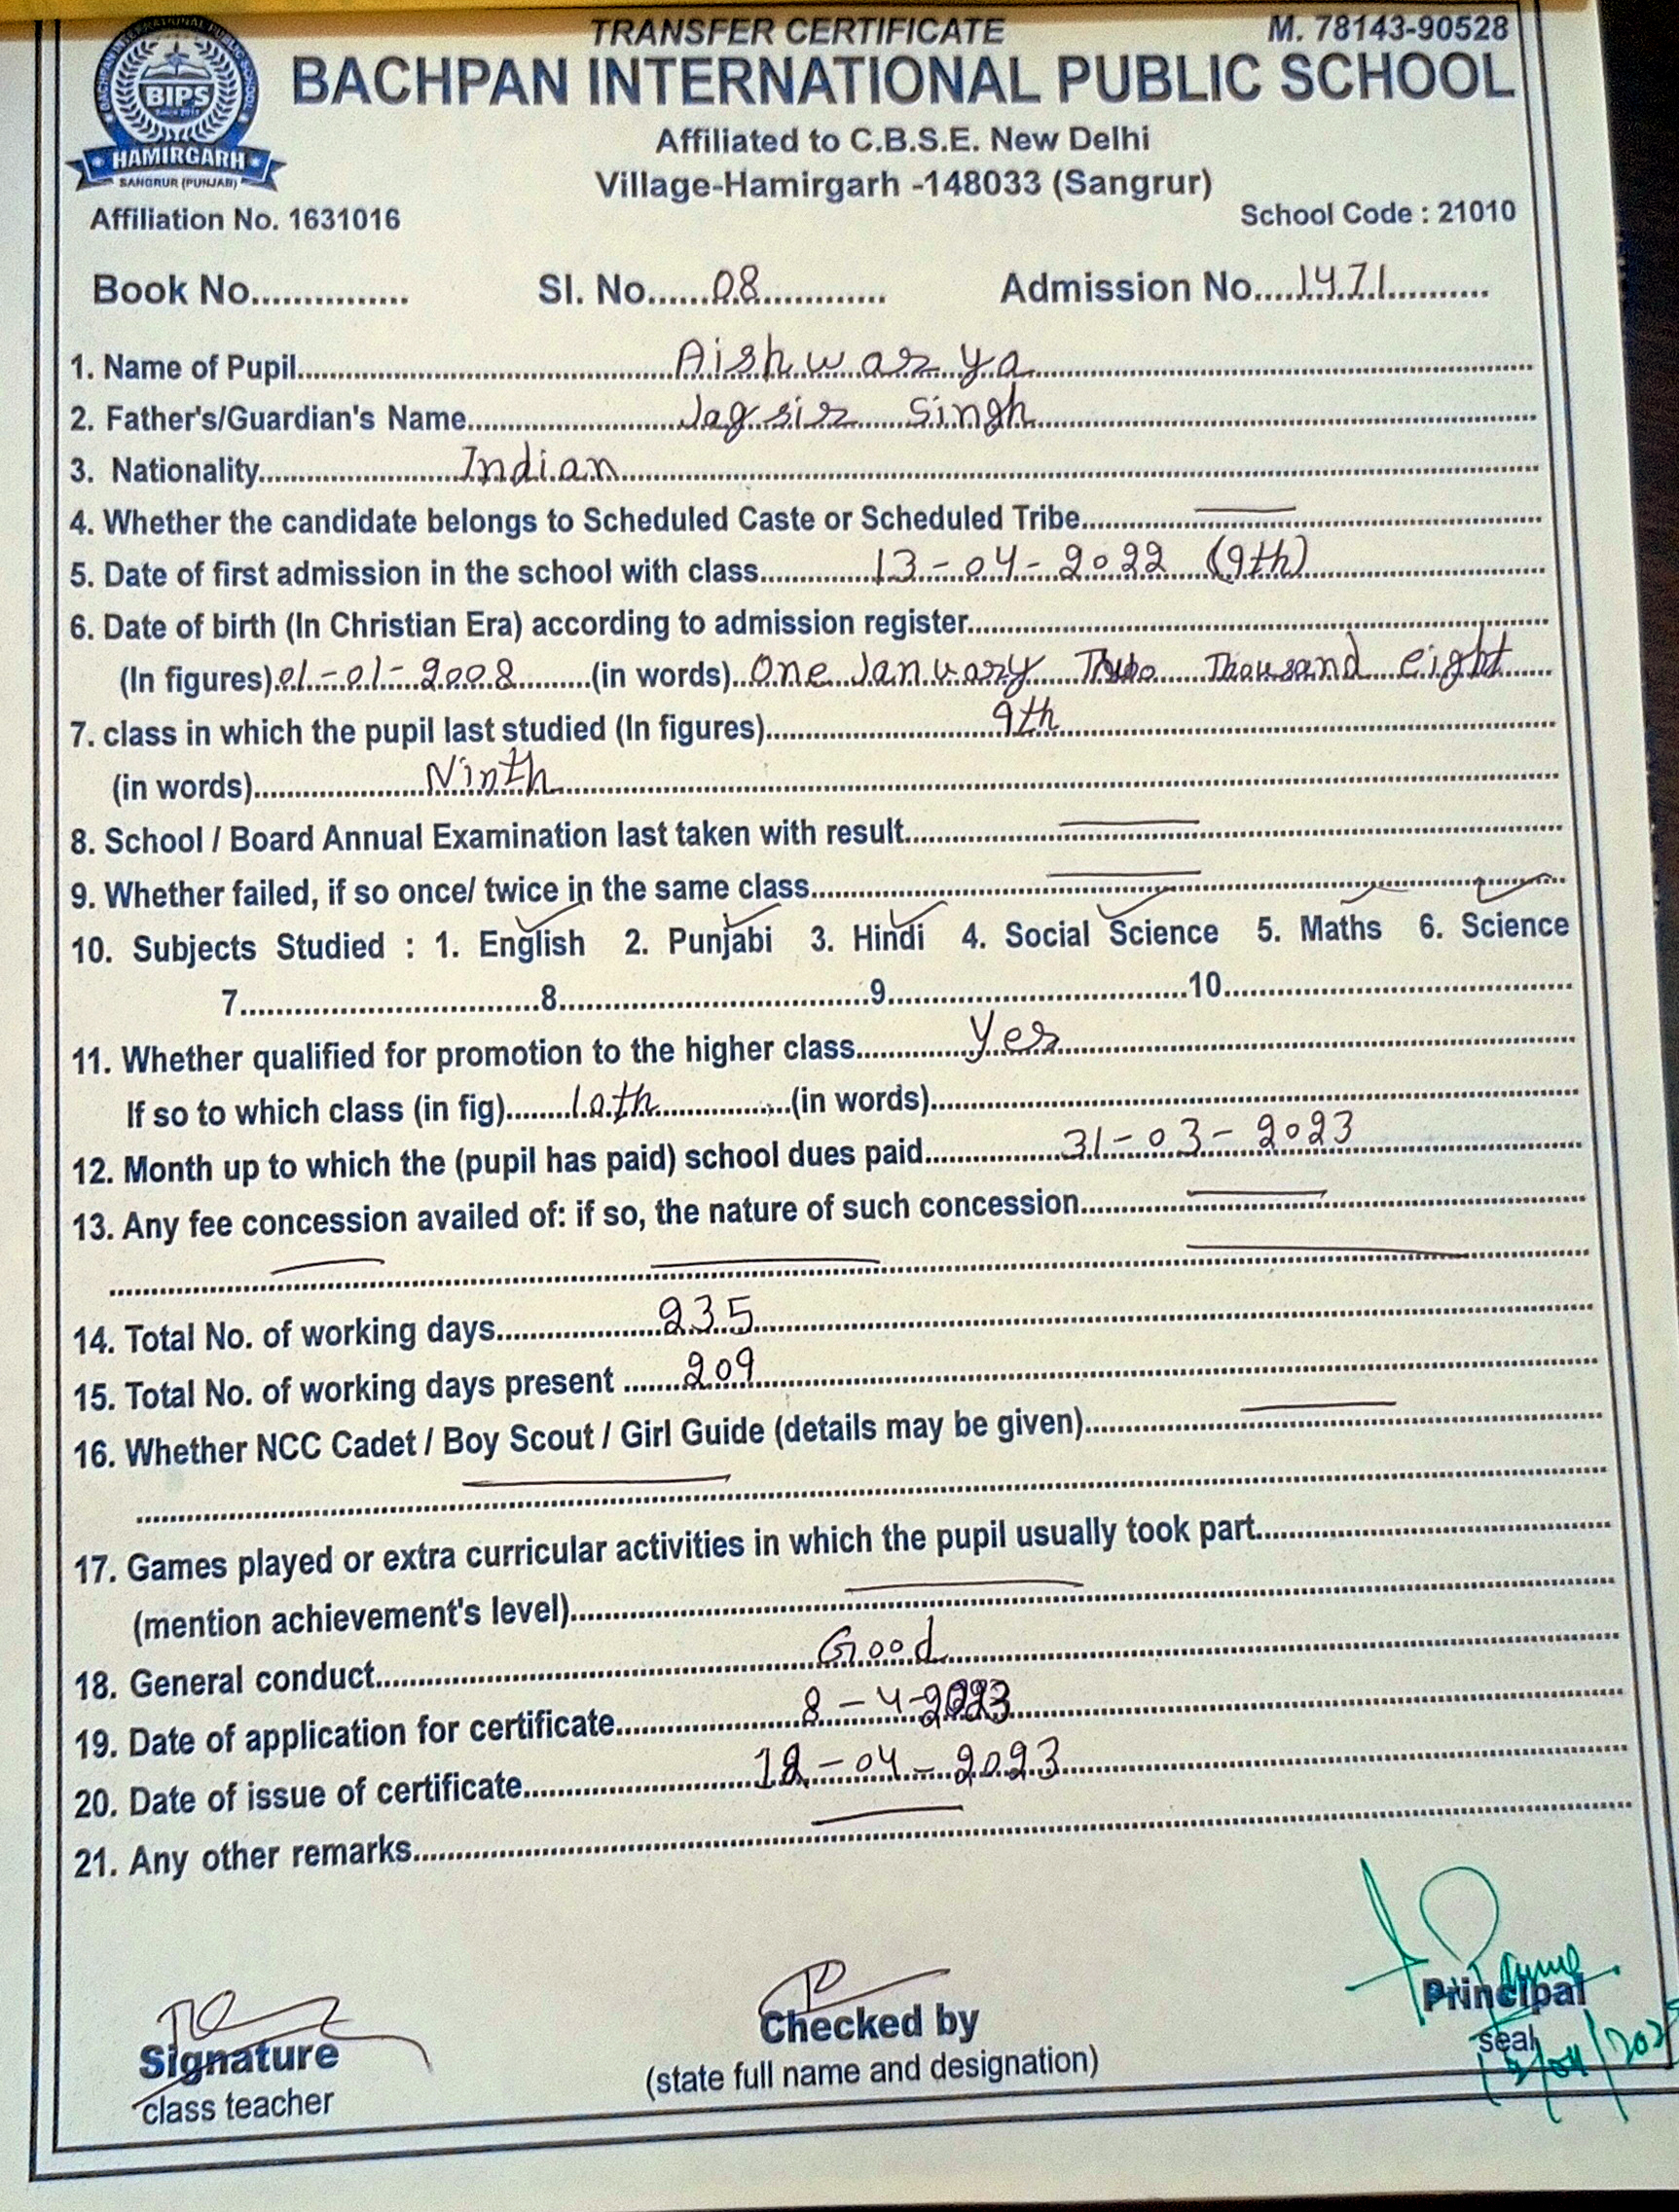 TRANSFER CERTIFICATE M. 78143-90528
BACHPAN INTERNATIONAL PUBLIC SCHOOL
BACHPAN INTERNATIONAL PUBLIC SCHOOL
BIPS
HAMIRGARH
SANGRUR (PUNJAB)
Affiliated to C.B.S.E. New Delhi
Village-Hamirgarh -148033 (Sangrur)
Affiliation No. 1631016 School Code : 21010
Book No............... Sl. No......08............ Admission No....1471..........
1. Name of Pupil...............Aishwarya...............
2. Father's/Guardian's Name...............Jagsir Singh...............
3. Nationality...............Indian...............
4. Whether the candidate belongs to Scheduled Caste or Scheduled Tribe............... —
5. Date of first admission in the school with class...............13-04-2022 (9th)...............
6. Date of birth (In Christian Era) according to admission register...............
(In figures).01-01-2008..........(in words)..One January Two Thousand eight.....
7. class in which the pupil last studied (In figures)...............9th...............
(in words)...............Ninth...............
8. School / Board Annual Examination last taken with result............... —
9. Whether failed, if so once/ twice in the same class............... —
10. Subjects Studied : 1. English 2. Punjabi 3. Hindi 4. Social Science 5. Maths 6. Science
7...............8...............9...............10...............
11. Whether qualified for promotion to the higher class...............Yes...............
If so to which class (in fig)........10th...............(in words)...............
12. Month up to which the (pupil has paid) school dues paid...............31-03-2023...............
13. Any fee concession availed of: if so, the nature of such concession............... —
............... — — —
14. Total No. of working days...............235...............
15. Total No. of working days present .......209...............
16. Whether NCC Cadet / Boy Scout / Girl Guide (details may be given)............... —
............... —
17. Games played or extra curricular activities in which the pupil usually took part...............
(mention achievement's level)............... —
18. General conduct...............Good...............
19. Date of application for certificate...............8-4-2023...............
20. Date of issue of certificate...............12-04-2023...............
21. Any other remarks............... —
Signature Checked by Principal
class teacher (state full name and designation) seal